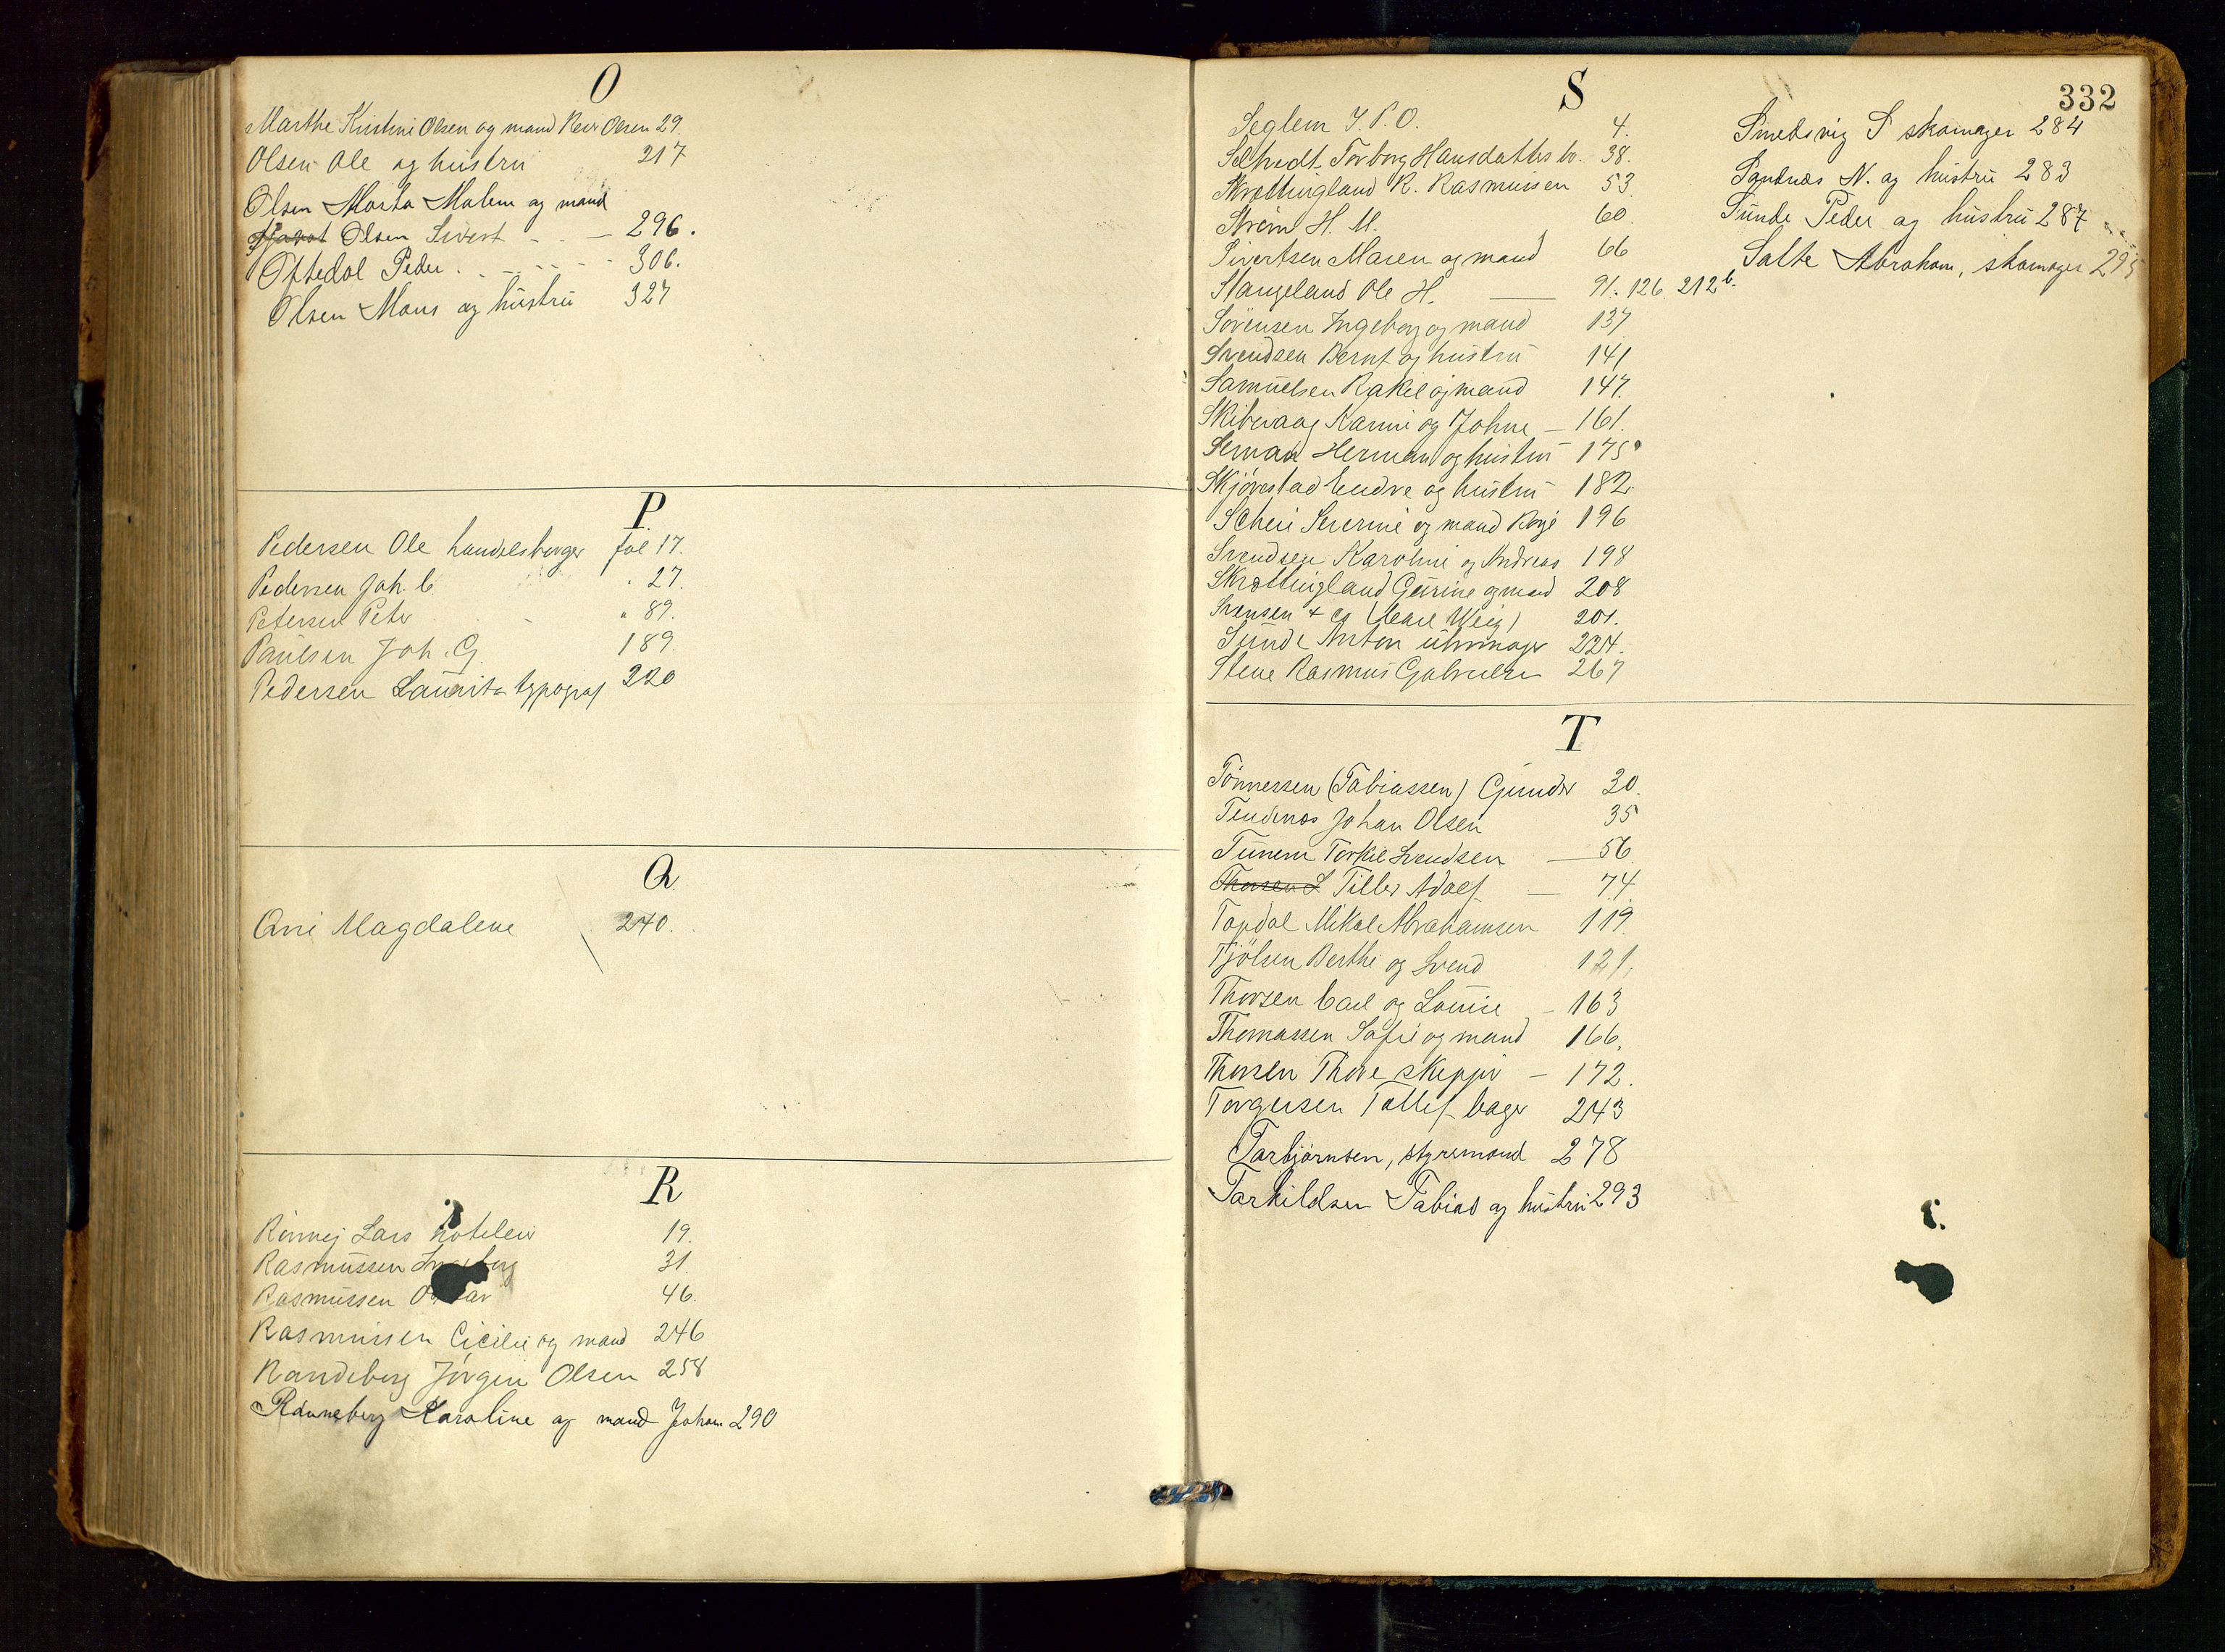 O
Marthe Kristine Olsen og mand Peer Olsen 29.
Olsen Ole og hustru 217
Olsen Marta Malene og mand
Olsen Sivert - - — 296.
Oftedal Peder . - - - - - 306.
Olsen Mons og hustru 327
P.
Pedersen Ole handelsborger fol 17.
Pedersen Joh. C. " 27.
Petersen Peter - " 89.
Paulsen Joh. G. 189.
Pedersen Lauritz typograf 220
Q.
Qni Magdalene 240.
R
Rönnej Lars hotelier 19.
Rasmussen Ingeborg 31.
Rasmussen Oskar 46.
Rasmussen Cicilie og mand 246
Randeberg Jörgen Olsen 258
Rønneberg Karoline og mand Johan 290
332
S
Seglem J. P. O. 4.
Torborg Hansdatter 38.
Skrettingland R. Rasmussen 53
Ström H. M. 60.
Sivertsen Maren og mand 66
Stangeland Ole H. — 91. 126. 212b.
Sörensen Ingeborg og mand 137
Svendsen Bernt og hustru 141
Samuelsen Rakel og mand 147.
Skibevaag Karine og Johne — 161.
Seman Herman og hustru 175a
Skjörestad Endre og hustru 182.
Schei Severine og mand Börje 196
Svendsen Karoline og Andreas 198
Skrættingland Gurine og mand 208
Svensen & Co (Carl Weig) 201.
Sunde Anton uhrmager 224.
Stene Rasmus Gabrielsen 267
Smedsvig S skomager 284
Sandnæs N. og hustru 283
Sunde Peder og hustru 287
Salte Abraham, skomager 295
T
Tönnessen (Tobiassen) Gunder 30.
Tendenæs Johan Olsen 35
Tunem Torkel Svendsen — 56
Thorsen S Tiller Adolf — 74.
Topdal Mikal Abrahamsen 119.
Tjölsen Berthe og Svend 121.
Thorsen Carl og Louise - 163
Thomassen Sofie og mand 166.
Thorsen Thore skipper — 172.
Torgersen Tollef bager 243
Torbjörnsen, styrmand 278
Torkildsen Tobias og hustru 293